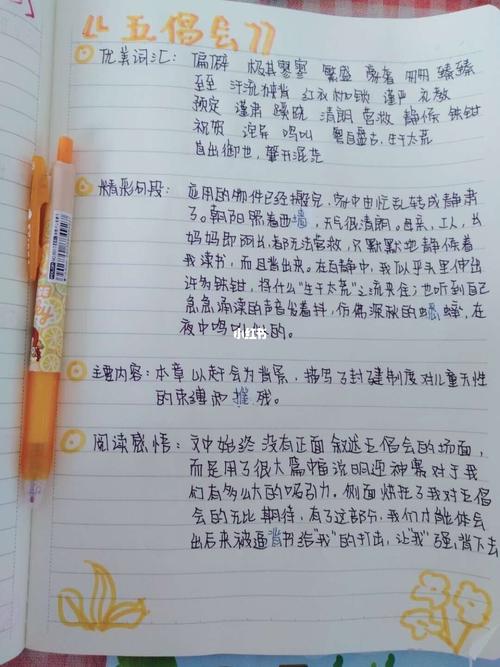 《五倡会》
优美词汇：偏僻 极其寥寥 繁盛
至 汗流浃背 红衣枷锁 谨严 礼教
预定 谨肃 踱跷 清朗 营救 静候 铁钳
祝贺 淀昇 鸣叫 粤自盘古，生于太荒
首出御世，肇开混茫
情形句段：应用的物件已经搬完，家中由忙乱转成静肃
了。朝阳照着西墙，天气很清朗。母亲，工人，长
妈妈即阿长，都无法营救，只默默地静候着
我读书，而且背出来。在百静中，我似乎头里伸出
许多铁钳，将什么“生于太荒”之流夹住；也听到自己
急急诵读的声音发着抖，仿佛深秋的蟋蟀，在
夜中鸣叫似的。
小红书
主要内容：本章以赶会为背景，描写了封建制度对儿童天性
的束缚和摧残。
阅读感悟：文中始终没有正面叙述五倡会的场面，
而是用了很大篇幅说明迎神赛对于我
们有多么大的吸引力。侧面烘托了我对五倡
会的无比期待，有了这部分，我们才能体会
出后来被逼背书给“我”的打击，让“我”强背下去